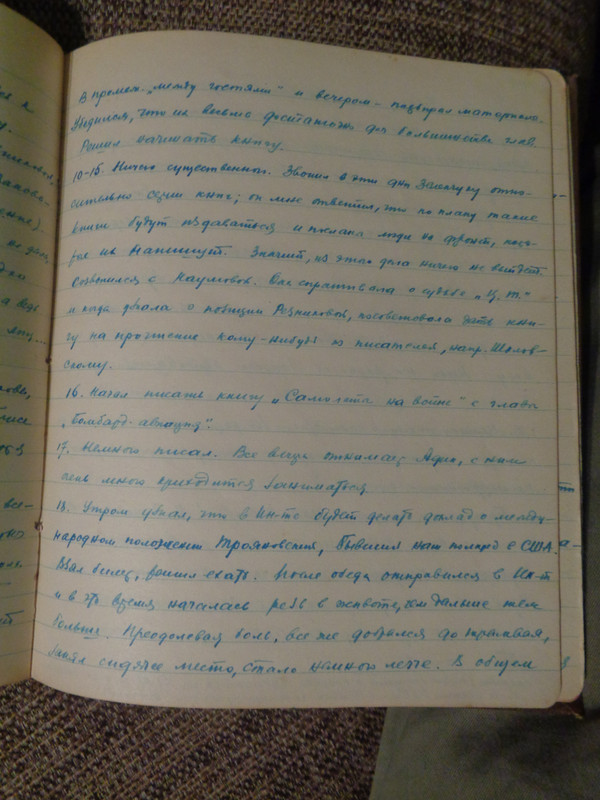 В промеж. „между гостями" и вечером - подбирал материал.
Убедился, что их весьма достаточно для большинства глав.
Решил начинать книгу.
10-15. Ничего существенного. Звонил в эти дни Засечуку отно-
сительно серии книг; он мне ответил, что по плану такие
книги будут издаваться и посланы люди на фронт, кото-
рые их напишут. Значит, из этого дела ничего не выйдет.
Созвонился с Наумовой. Она спрашивала о судьбе „Ц. т."
и когда узнала о позиции Резниковой, посоветовала дать кни-
гу на прочтение кому-нибудь из писателей, напр. Шклов-
скому.
16. Начал писать книгу „Самолеты на войне" с главы
„Бомбард. авиация".
17. Немного писал. Все время отнимает Адик, с ним
очень много приходится заниматься.
18. Утром узнал, что в Ин-те будет делать доклад о между-
народном положении Трояновский, бывший наш полпред в США.
Взял билет, решил ехать. После обеда отправился в Ин-т
и в это время началась резь в животе, чем дальше тем
больше. Преодолевая боль, все же добрался до трамвая,
занял сидячее место, стало немного легче. В общем